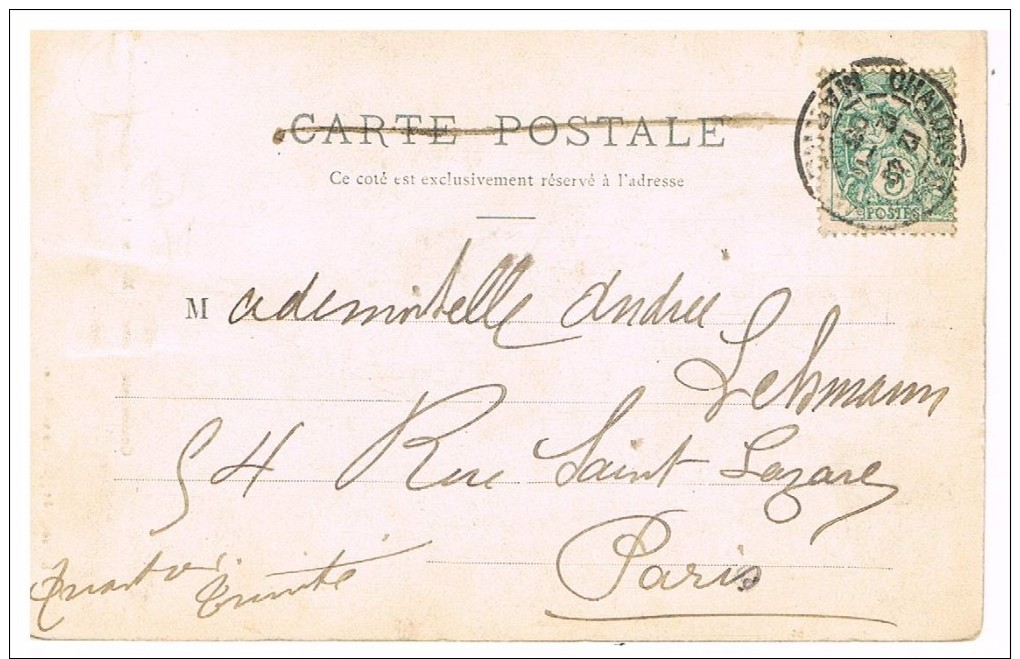 CARTE POSTALE
Ce coté est exclusivement réservé à l'adresse
Mademoiselle Andrée
Lehmann
54 Rue Saint Lazare
Paris
Trinité
5
POSTES
CHALONS